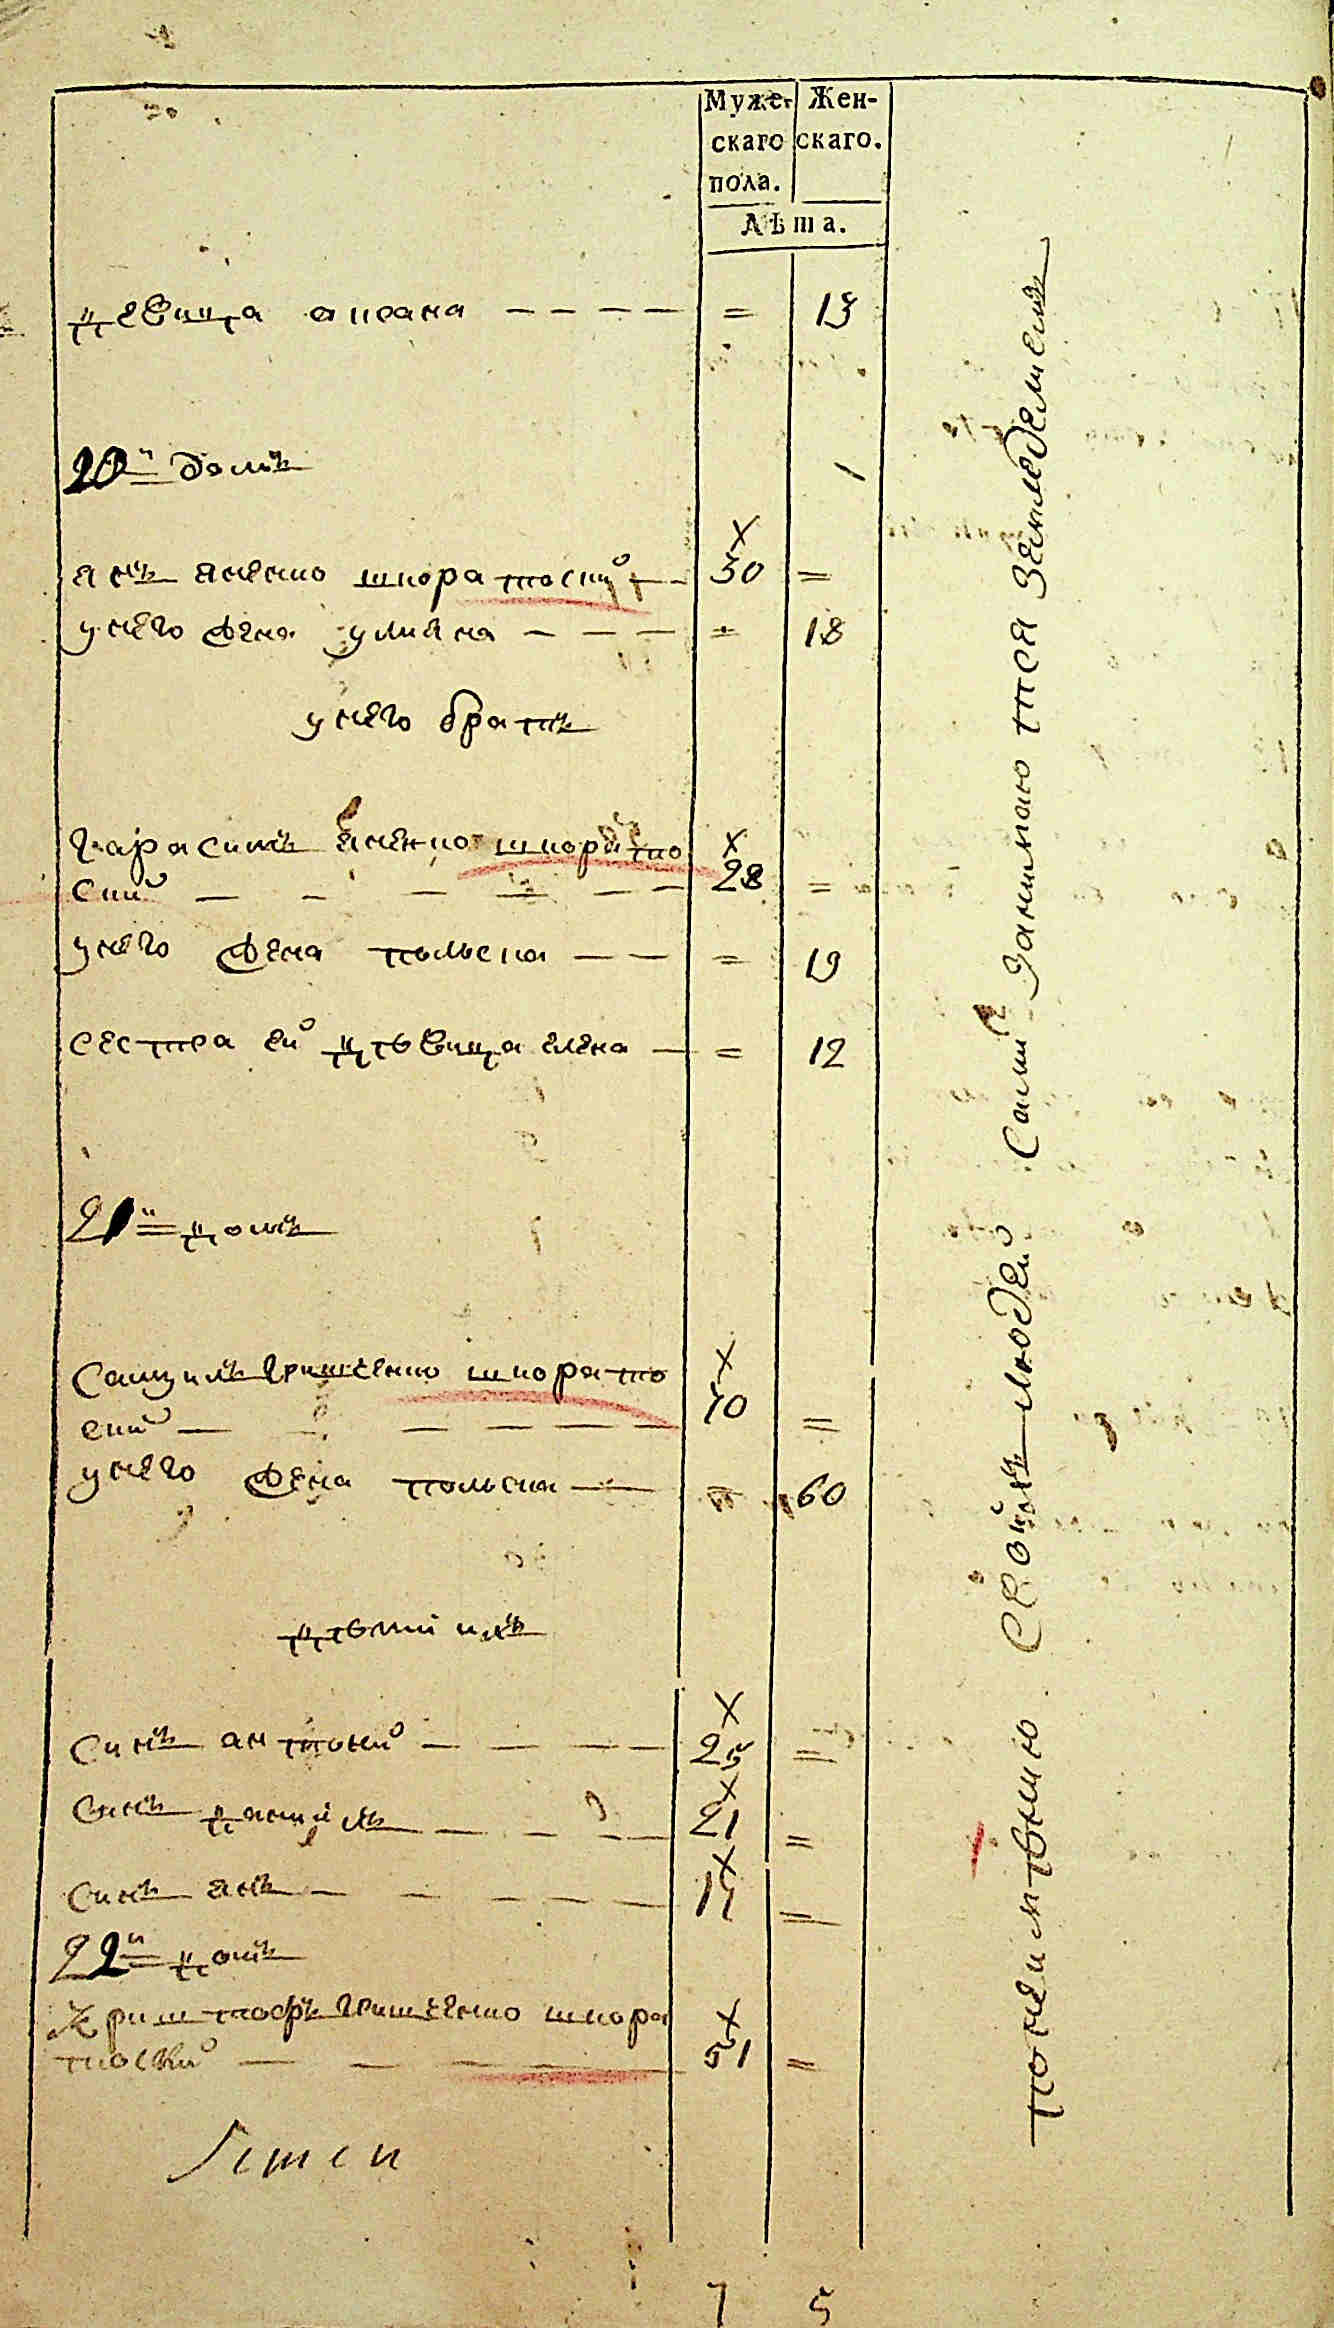 Мужескаго пола.
Женскаго.
Лѣта.
девица апрана 13
20й домъ
янъ яненко шкоратоский 30
унего жена улияна 18
унего братъ
гарасимъ яненко шкорато
ский 28
унего жена полься 19
сестра его дѣвица елена 12
21й домъ
Самуилъ гришченко шкорато
ский 70
унего жена полься 60
дѣти ихъ
Синъ антоний 25
Синъ данийлъ 21
Синъ янъ 14
22й домъ
Христофъ гришченко шкора
тоский 51
7 5
понеимѣнию свойхъ людей Сами занимаются земледелием